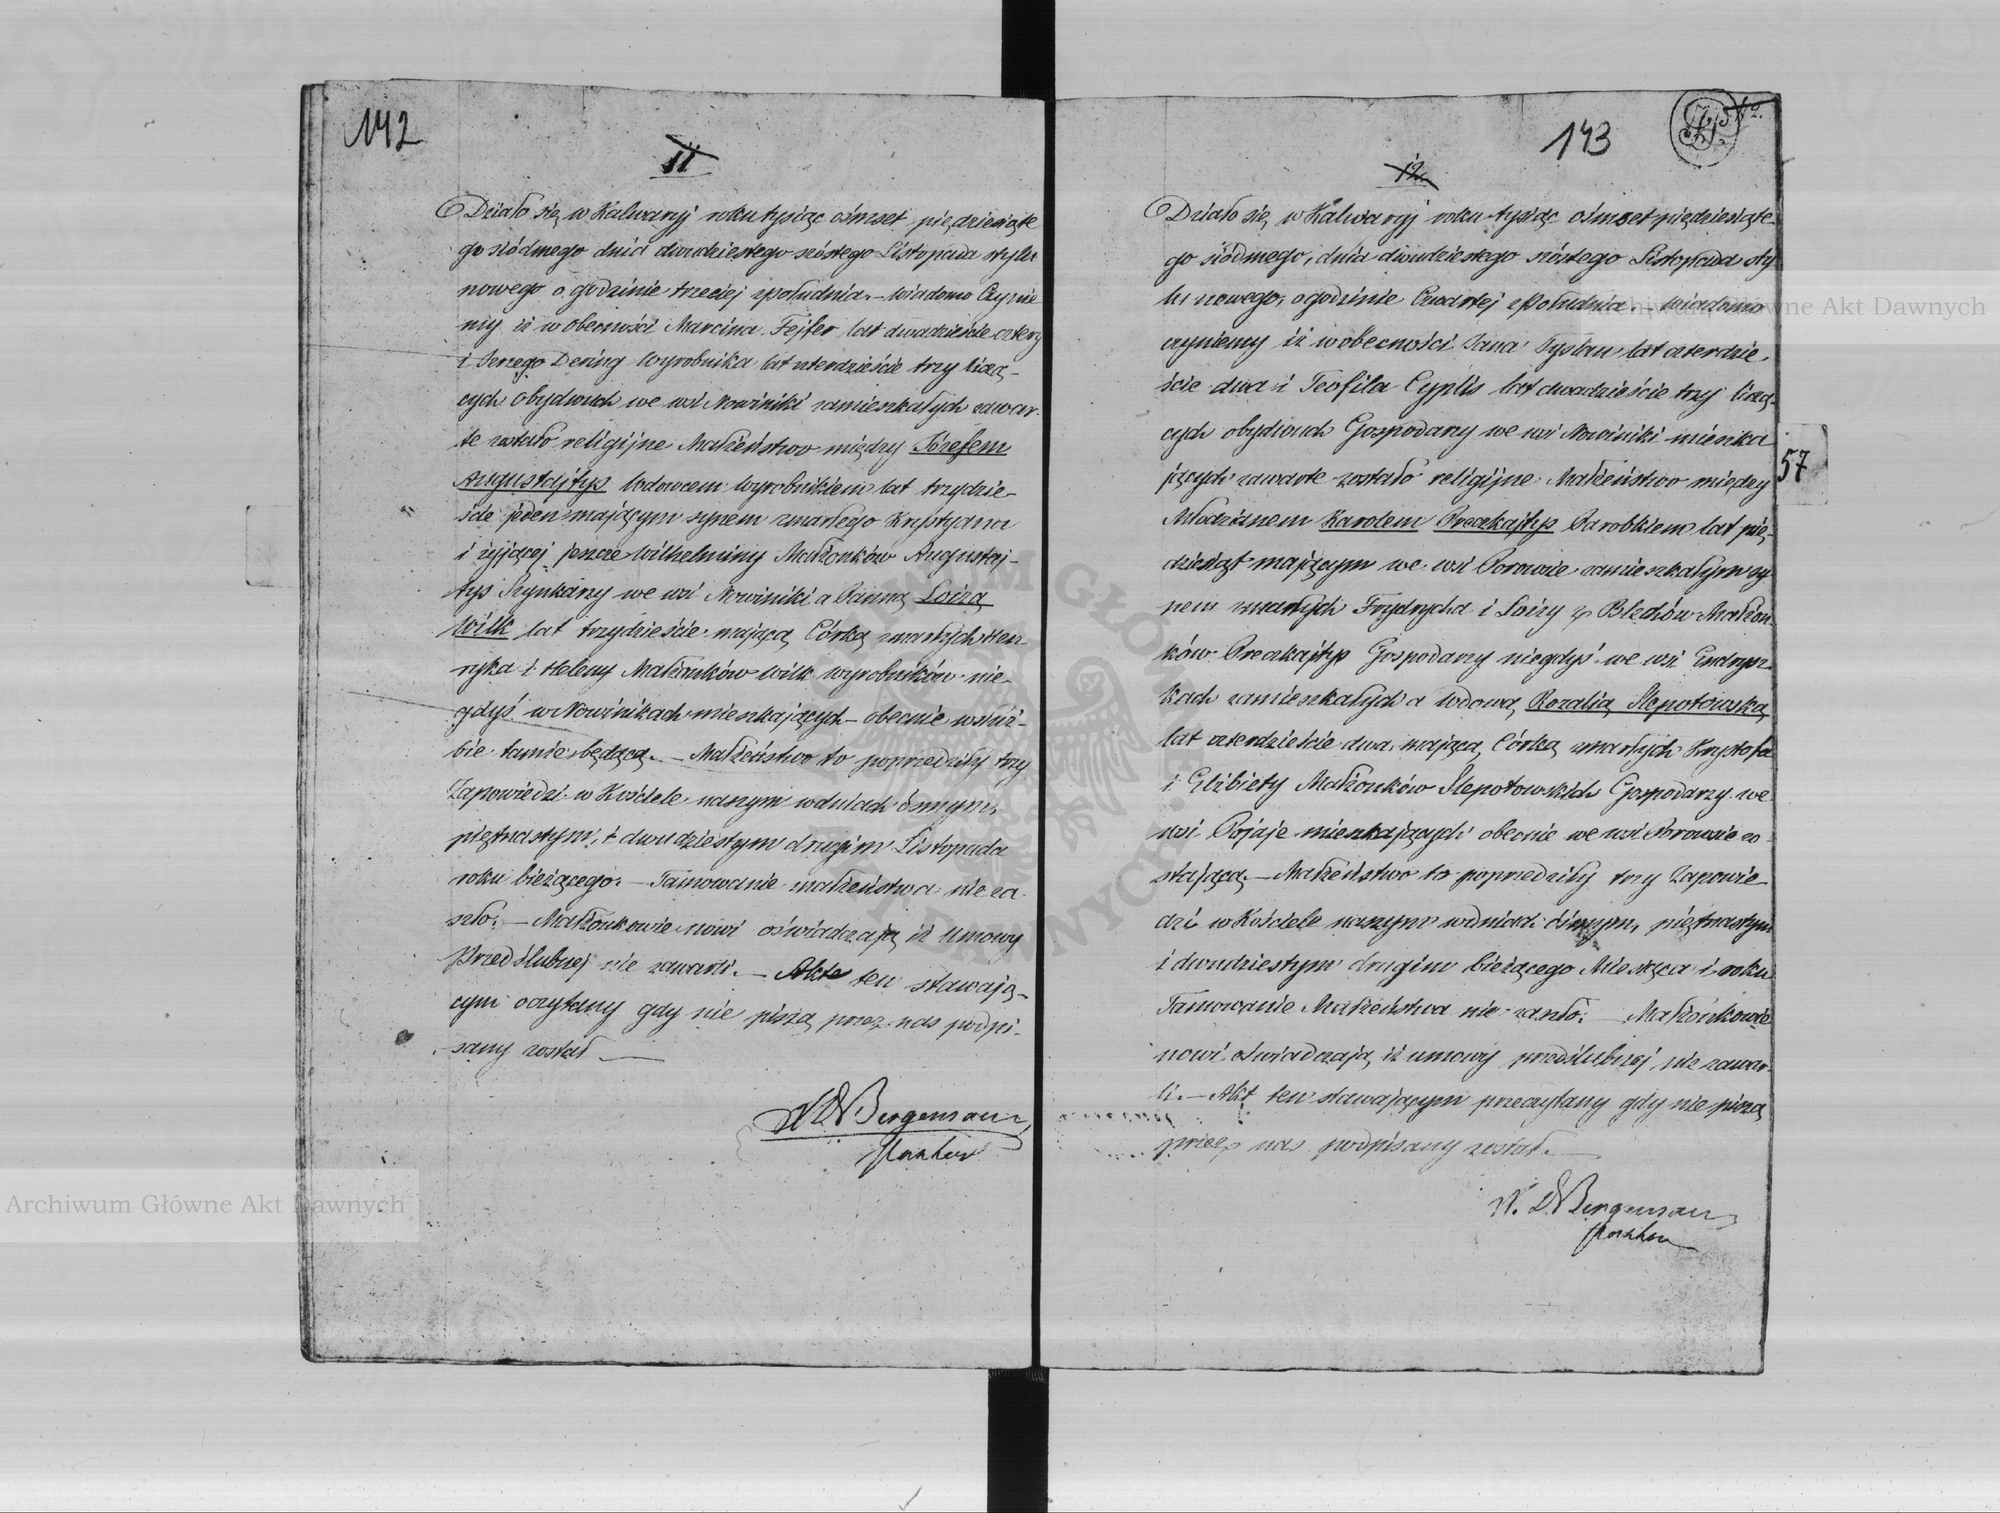 142
11
Działo się w Kalwaryj roku tysiąc ośmset pięćdziesiąte
go siódmego dnia dwudziestego szóstego Listopada stylu
nowego o godzinie trzeciej zpołudnia. – Wiadomo Czynie
my iż w obecności Marcina Fejfer lat dwadzieście cztery
i Jerzego Dering Wyrobnika lat czterdzieście trzy licą–
cych obydwuch we wsi Nowiniki zamieszkałych zawar
te zostało religijne Małżeństwo między Józefem
Augustajtys Wdowcem Wyrobnikiem lat trzydzie–
ście jeden mającym synem zmarłego Krystyana
i żyjącej jeszcze Wilhelminy Małżonków Augustaj–
tys Szynkarzy we wsi Nowiniki a Panną Loizą
Wilk lat trzydzieście mającą Córką zmarłych Hen
ryka i Heleny Małżonków Wilk wyrobników nie–
gdyś w Nowinikach mieszkających – obecnie w służ–
bie tamże będącą. – Małżeństwo to poprzedziły trzy
Zapowiedzi w Kościele naszym w dniach ósmym,
piętnastym, i dwudziestym drugim Listopada
roku bieżącego. – Tamowanie małżeństwa nie za
szło. – Małżonkowie nowi oświadczają iż Umowy
Przedślubnej nie zawarli. – Akt ten stawają–
cym oczytany gdy nie piszą przez nas podpi–
sany został —
Bergemann
Pastor
143
12
Działo się w Kalwaryj roku tysiąc ośmset pięćdziesiąte–
go siódmego, dnia dwudziestego szóstego Listopada sty
lu nowego, o godzinie Czwartej zpołudnia. – Wiadomo
czyniemy iż w obecności Jana lat czterdzie–
ście dwa i Teofila Cyplis lat dwadzieście trzy liczą–
cych obydwuch Gospodarzy we wsi Nowiniki mieszka
jących zawarte zostało religijne Małżeństwo między
Młodzianem Karolem Preczkajtys Parobkiem lat pię–
dziesiąt mającym we wsi zamieszkałym sy
nem zmarłych Frydrycha i Loizy z Małżon
ków Preczkajtys Gospodarzy niegdyś we wsi Endrysz
kach zamieszkałych a Wdową Rozalią Slepotowską
lat czterdzieście dwa mającą Córką zmarłych Krystofa
i Elżbiety Małżonków Slepotowskich Gospodarzy we
wsi Pojaje mieszkających obecnie we wsi zo
stającą. – Małżeństwo to poprzedziły trzy Zapowie–
dzi w Kościele naszym w dniach ósmym, piętnastym
i dwudziestym drugim bieżącego Miesiąca i roku
Tamowanie Małżeństwa nie zaszło. – Małżonkowie
nowi oświadczają iż umowy przedślubnej nie zawar–
li. – Akt ten stawającym przeczytany gdy nie piszą
przez nas podpisany został. —
Bergemann
Pastor
57
Archiwum Główne Akt Dawnych
Archiwum Główne Akt Dawnych